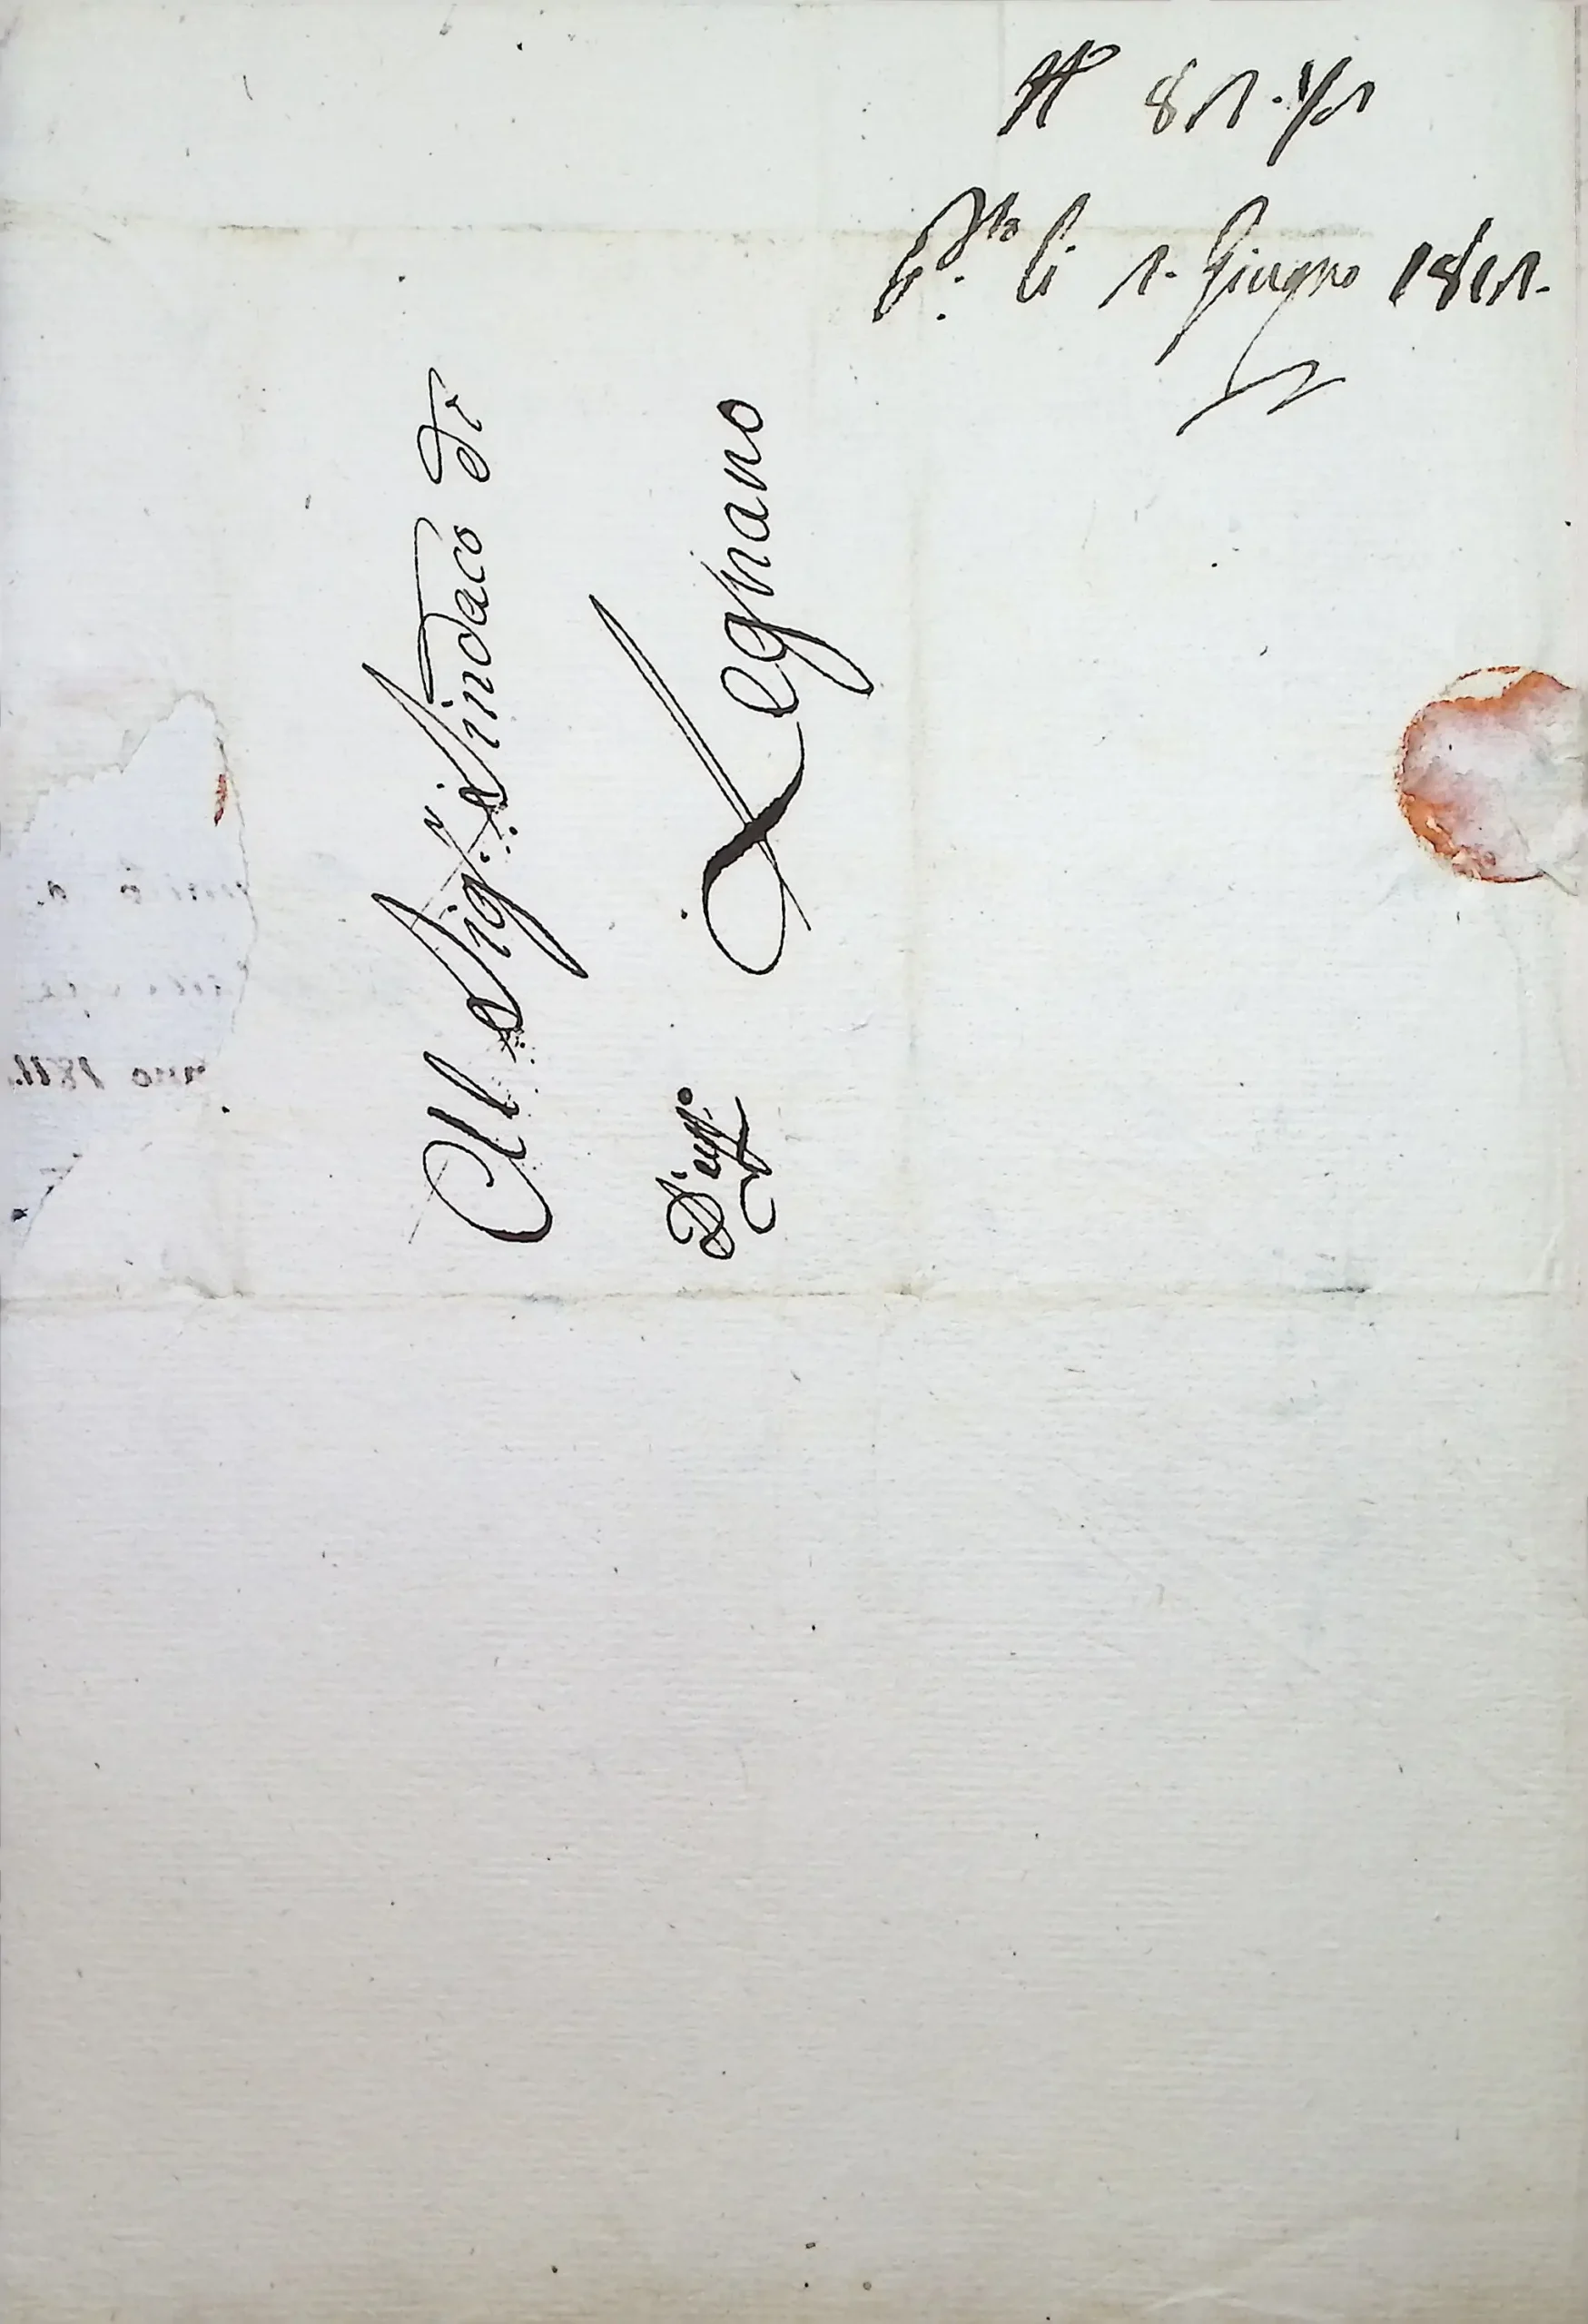 N° 81. 1/1
P.ta li 1. Giugno 1811.
Al Sig.r Sindaco di
Legnano
1811.